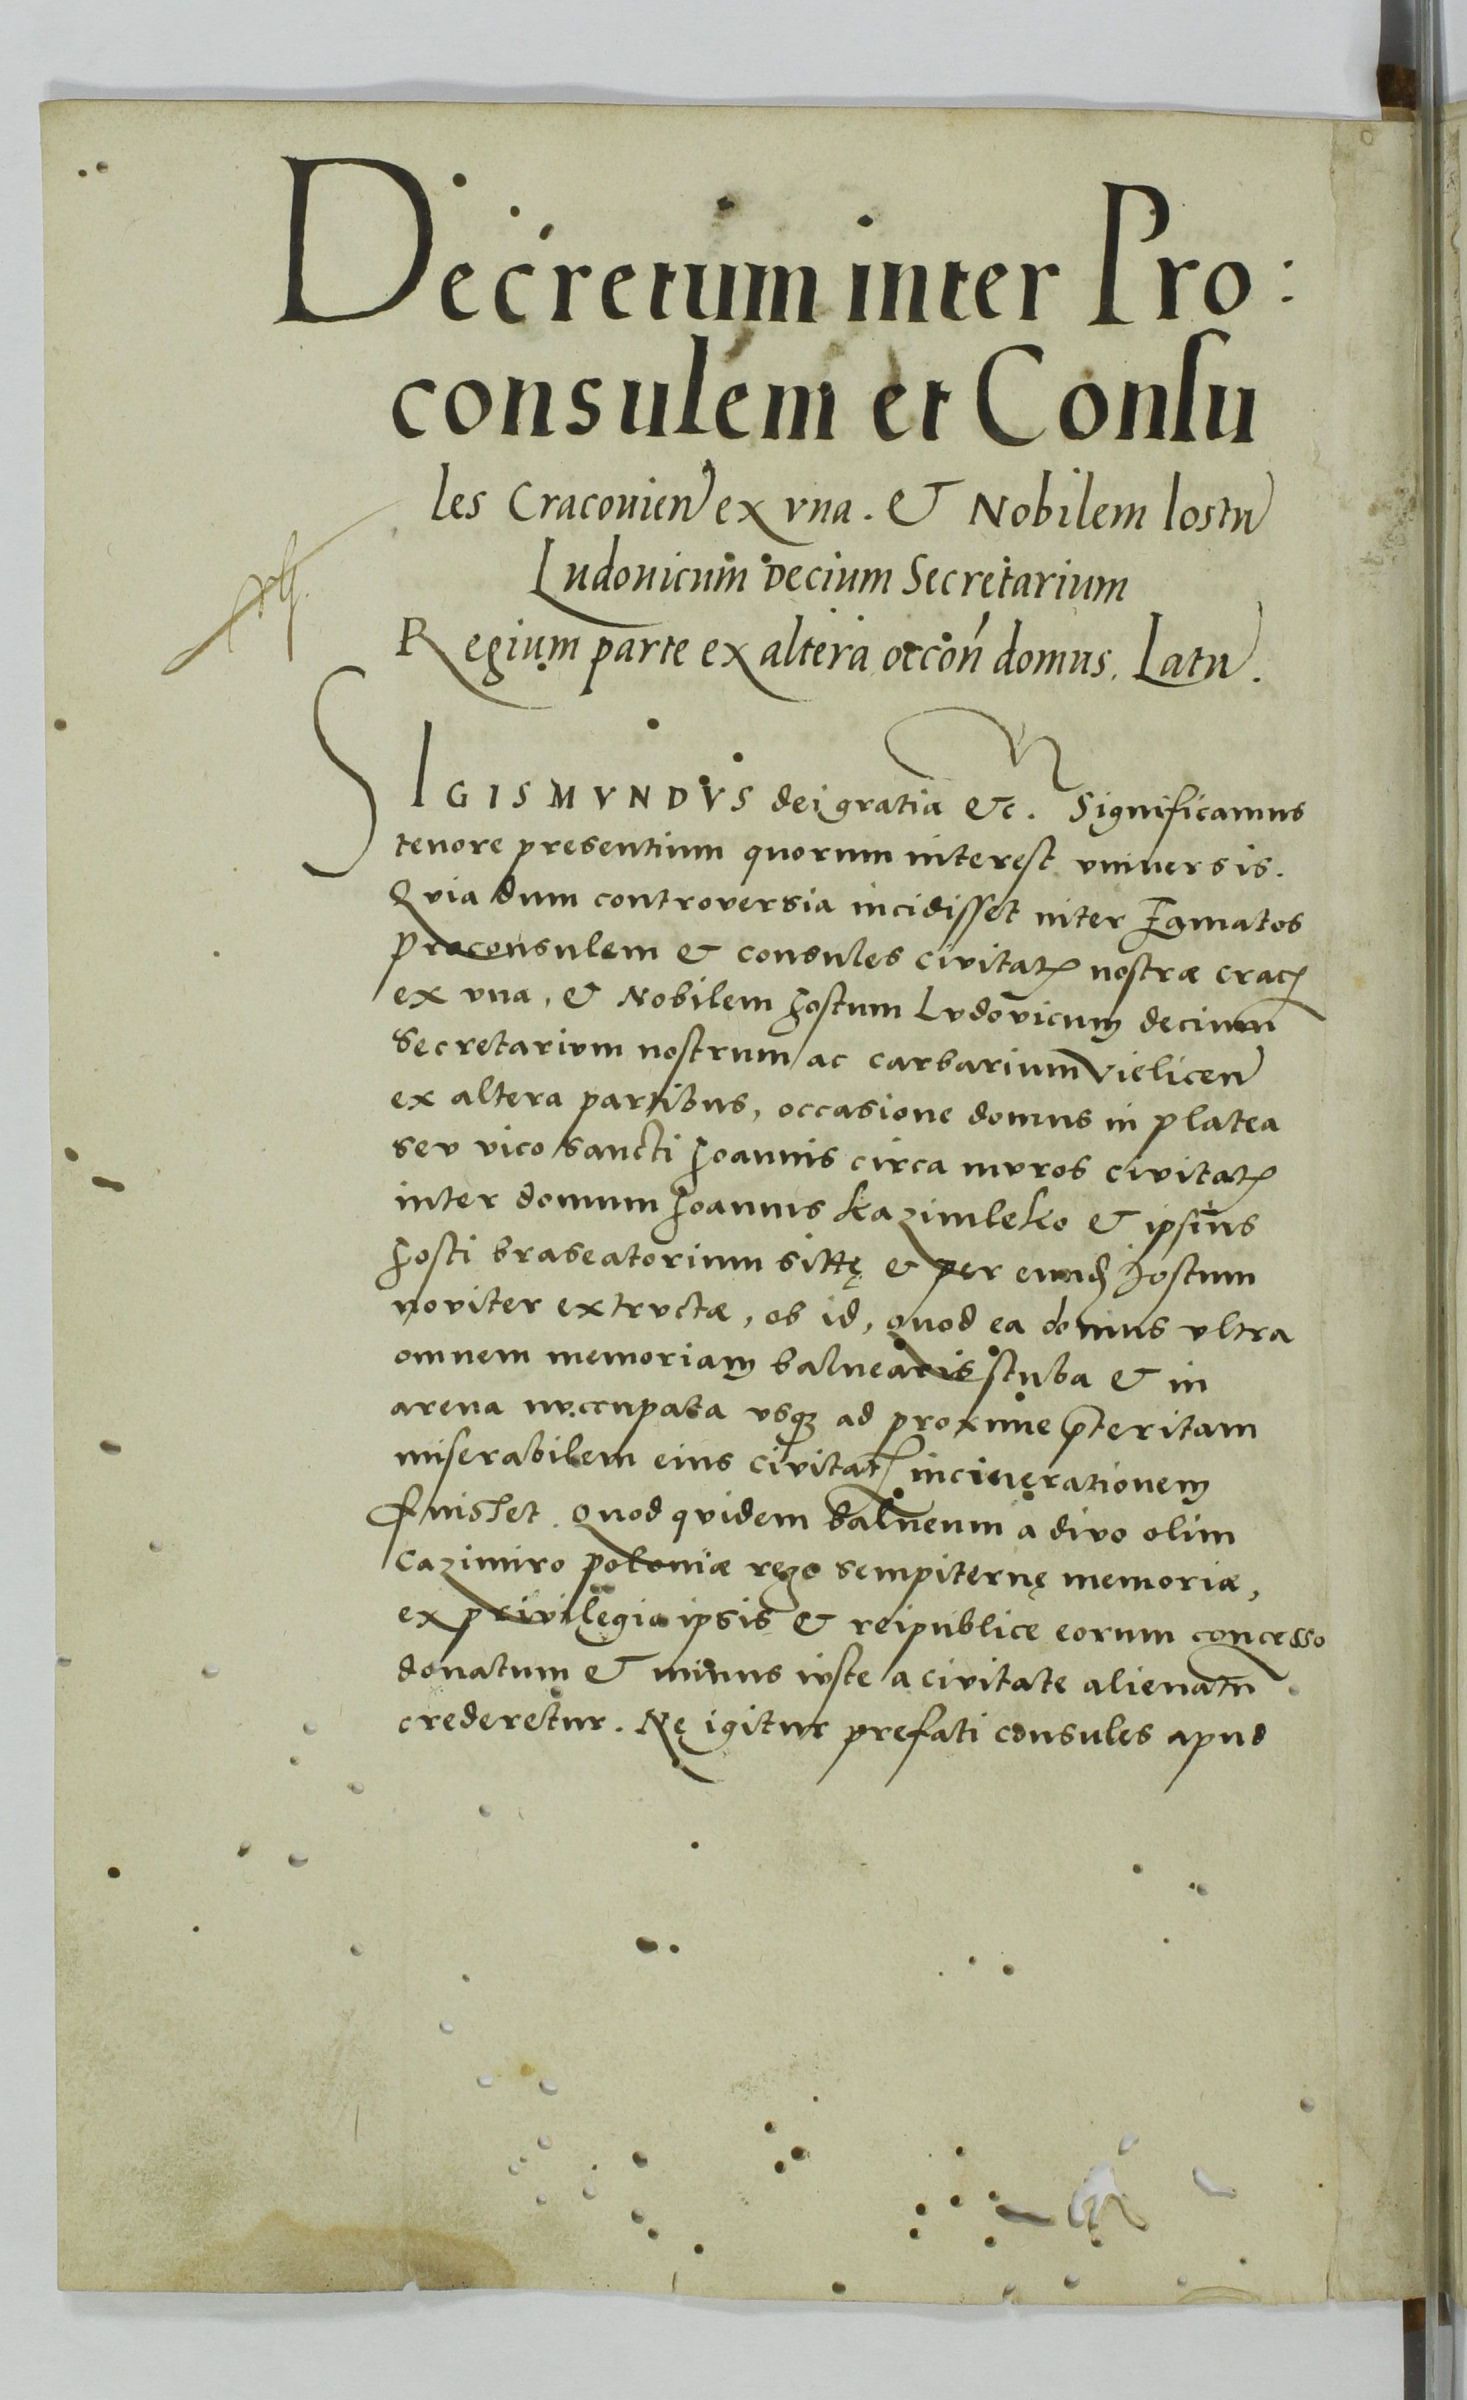 Decretum inter Pro:
consulem et Consu
les Cracouien ex vna. & Nobilem Iostu
Ludouicum Decium Secretarium
Regium parte ex altera occōn domus. Latu.
SIGISMVNDVS dei gratia &c. Significamus
tenore presentium quorum interest vniuersis.
Qvia dum controversia incidisset inter Famatos
proconsulem & consules civitatꝫ nostræ crac
ex vna, & Nobilem Jostum Lvdovicum decium
Secretarivm nostrum ac carbarium vielicen
ex altera partibus, occasione domus in platea
sev vico sancti Joannis circa mvros civitatꝫ
inter domum Joannis kazimleko & ipsius
Josti braseatorium sittę & per eund Jostum
noviter extrvctæ, ob id, quod ea domus vltra
omnem memoriam balnearis stuba & in
arena nvccupata vsqꝫ ad proxime p̄teritam
miserabilem eius civitatꝫ incinerationem
fuisset. Quod qvidem balneum a divo olim
Cazimiro poloniæ rege sempiternę memoriæ,
ex privilegio ipsis & reipublice eorum concesso
donatum & minus ivste a civitate alienatū
crederetur. Ne igitur prefati consules apud